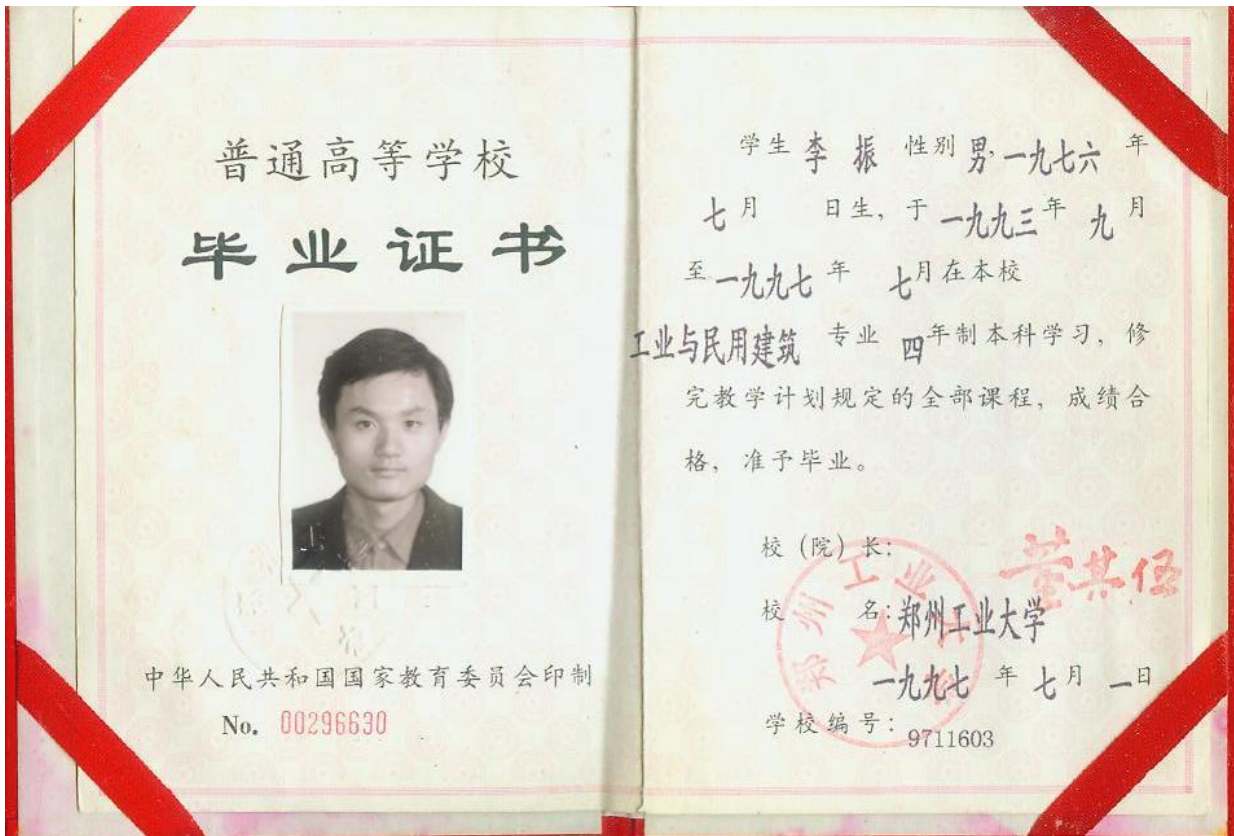 普通高等学校
毕业证书
中华人民共和国国家教育委员会印制
No. 00296630
学生 李振 性别 男, 一九七六 年
七月 日生, 于 一九九三 年 九 月
至 一九九七 年 七月在本校
工业与民用建筑 专业 四年制本科学习, 修
完教学计划规定的全部课程, 成绩合
格, 准予毕业。
校(院)长: 董其伍
校 名: 郑州工业大学
一九九七 年 七月 一日
学校编号: 9711603
郑州工业大学